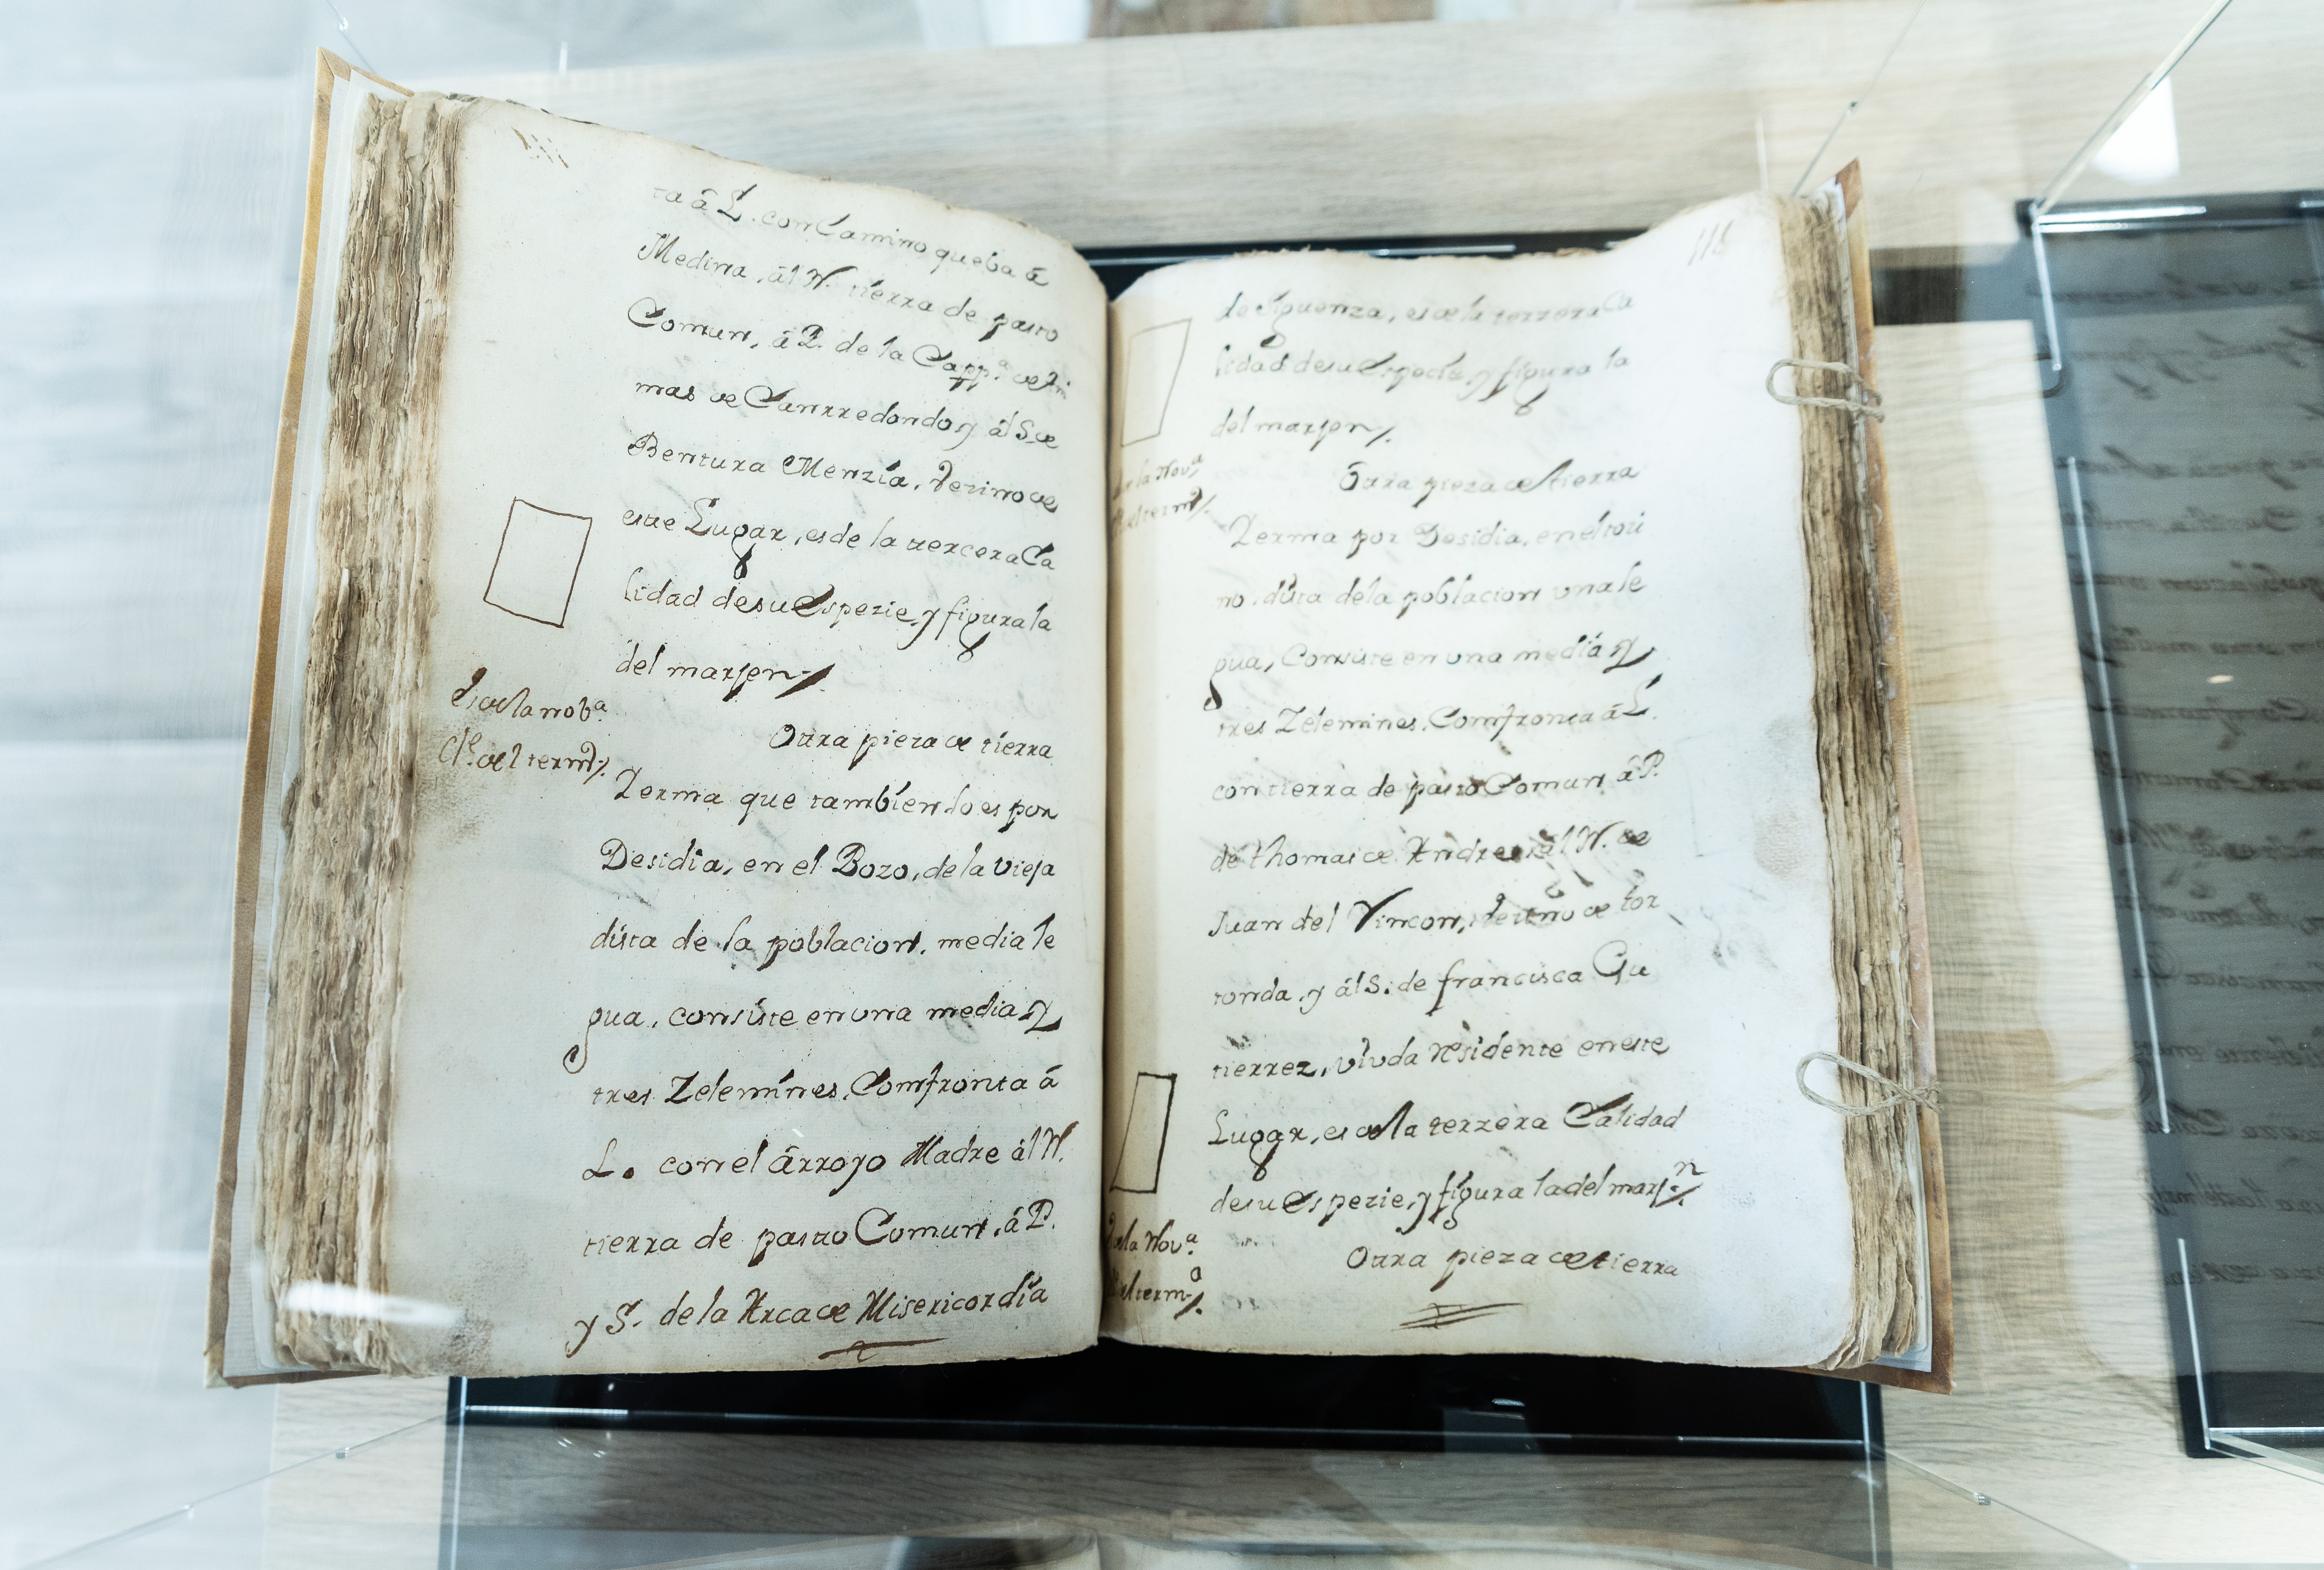 ta á L. con Camino que ba á
Medina, ál N. tierra de pasto
Comun, á P. de la Capp.ª de Áni
mas de Canrredondo y ál S. de
Bentura Menzía, Vezino de
este Lugar, es de la tercera Ca
lidad de su Espezie, y figura la
del marjen
Es de la nob.ª
Cl.e del term.º
Otra pieza de tierra
Yerma que tambien lo es por
Desidia, en el Bozo, de la Vieja
dista de la poblacion, media le
gua, consiste en una media y
tres Zelemínes, Comfronta á
L. con el árroyo Madre ál N.
tierra de pasto Comun, á P.
y S. de la Arca de Misericordia
118
de Siguenza, es de la terzera Ca
lidad de su Espezie, y figura la
del marjen
de la Nov.ª
del term.º
Otra pieza de tierra
Yerma por Desidia, en él
no, dista dela poblacion una le
gua, Consiste en una media y
tres Zelemines, Comfronta á L.
con tierra de pasto Comun, á P.
de thomas de Andres, ál N. de
Juan del Rincon, de tor
tonda, y ál S. de francisca Gu
tierrez, viuda residente en este
Lugar, es de la terzera Calidad
de su Espezie, y figura la del marj.n
de la Nov.ª
del term.º
Otra pieza de tierra